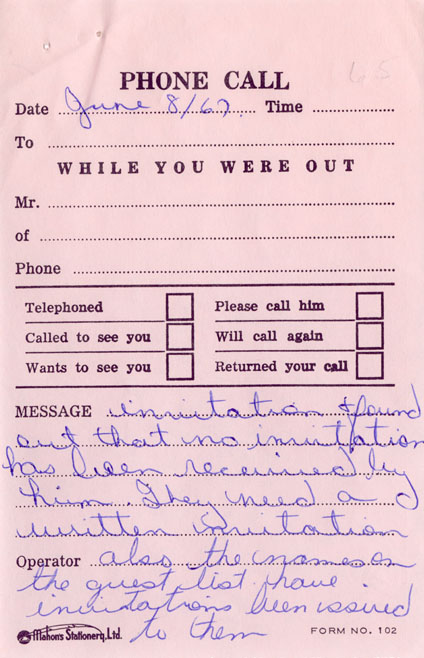 65
PHONE CALL
Date June 8/67. Time
To
WHILE YOU WERE OUT
Mr.
of
Phone
Telephoned Please call him
Called to see you Will call again
Wants to see you Returned your call
MESSAGE invitation & found
out that no invitation
has been received by
him. They need a
written invitation
Operator also the names on
the guest list have
invitations been issued
to them
Mahon's Stationery, Ltd. FORM NO. 102